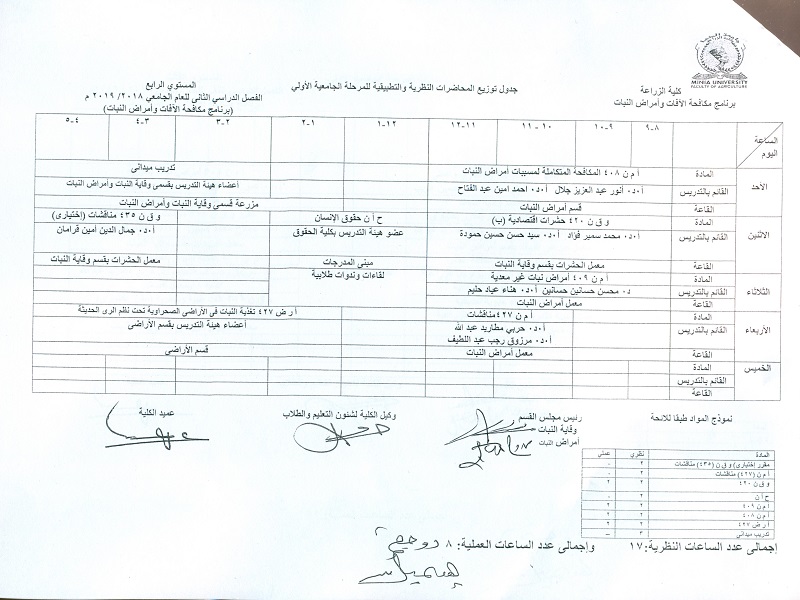 MINIA UNIVERSITY
FACULTY OF AGRICULTURE
كلية الزراعة
برنامج مكافحة الآفات وأمراض النبات
جدول توزيع المحاضرات النظرية والتطبيقية للمرحلة الجامعية الأولي
المستوي الرابع
الفصل الدراسي الثانى للعام الجامعي ٢٠١٨/ ٢٠١٩ م
(برنامج مكافحة الآفات وأمراض النبات)
الساعة
اليوم
٨-٩ ٩-١٠ ١٠-١١ ١١-١٢ ١٢-١ ١-٢ ٢-٣ ٣-٤ ٤-٥
الأحد
المادة أ م ن ٤٠٨ المكافحة المتكاملة لمسببات أمراض النبات تدريب ميدانى
القائم بالتدريس أ.د. أنور عبد العزيز جلال أ.د. احمد امين عبد الفتاح أعضاء هيئة التدريس بقسمى وقاية النبات وأمراض النبات
القاعة قسم أمراض النبات مزرعة قسمى وقاية النبات وأمراض النبات
الاثنين
المادة و ق ن ٤٢٠ حشرات اقتصادية (ب) ح أ ن حقوق الإنسان و ق ن ٤٣٥ مناقشات (إختيارى)
القائم بالتدريس أ.د. محمد سمير فؤاد أ.د. سيد حسن حسين حمودة عضو هيئة التدريس بكلية الحقوق أ.د. جمال الدين أمين فرامان
القاعة معمل الحشرات بقسم وقاية النبات مبنى المدرجات معمل الحشرات بقسم وقاية النبات
الثلاثاء
المادة أ م ن ٤٠٩ أمراض نبات غير معدية لقاءات وندوات طلابية
القائم بالتدريس د. محسن حسانين حسانين أ.د. هناء عياد حليم
القاعة معمل أمراض النبات
الأربعاء
المادة أ م ن ٤٢٧ مناقشات أ ر ض ٤٢٧ تغذية النبات في الأراضى الصحراوية تحت نظم الرى الحديثة
القائم بالتدريس أ.د. حربي مطاريد عبد الله أعضاء هيئة التدريس بقسم الأراضى
أ.د. مرزوق رجب عبد اللطيف
القاعة معمل أمراض النبات قسم الأراضى
الخميس
المادة
القائم بالتدريس
القاعة
نموذج المواد طبقا للائحة
رئيس مجلس القسم
وقاية النبات
أمراض النبات
وكيل الكلية لشئون التعليم والطلاب
عميد الكلية
المادة نظري عملي
مقرر إختيارى) و ق ن (٤٣٥) مناقشات ٢ -
أ م ن (٤٢٧) مناقشات ٢ -
و ق ن ٤٢٠ ٢ ٢
ح أ ن ٢ -
أ م ن ٤٠٩ ٢ ٢
أ م ن ٤٠٨ ٢ ٢
أ ر ض ٤٢٧ ٢ ٢
تدريب ميدانى
إجمالى عدد الساعات النظرية: ١٧ وإجمالى عدد الساعات العملية: ٨